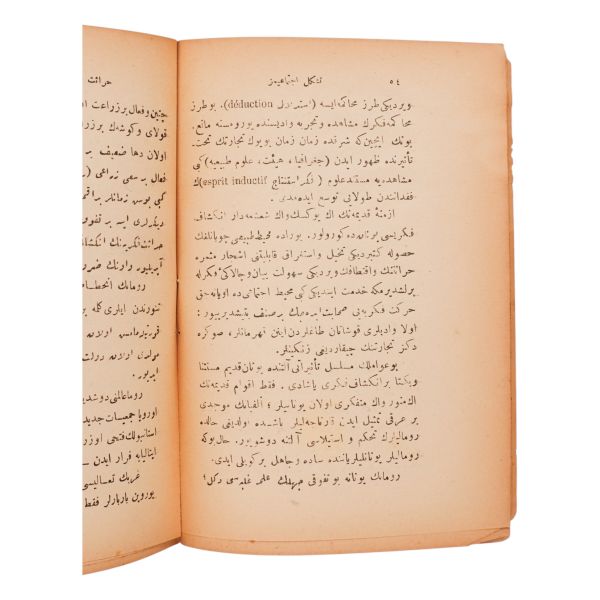 ٥٤
تشكل اجتماعيمز
ويرديكى طرز محاكمه ايسه (استدلال déduction). بو طرز
محاكمه فكرك مشاهده و تجربه واديسنده يورومسنه مانع.
بونك ايچين كه شرقده زمان زمان بويوك تجارتك تحت
تأثيرنده ظهور ايدن (جغرافيا، هيئت، علوم طبيعيه) كى
مشاهده يه مستند علوم (فكر استنتاج esprit inductif) ك
فقدانندن طولايى توسع ايده مدى.
ازمنۀ قديمه نك اك يوكسك واك شعشعه دار انكشاف
فكريسى يونانده كورولور. بوراده محيط طبيعى چوبانلغك
حصوله كتيرديكى تخيل واستغراق قابليتنى اشجار مثمره
حراثتنك واقتطافك ويرديكى سهولت بيان وچالاكئ فكرله
برلشديرمكه خدمت ايتديكى كى محيط اجتماعى ده اويانه جق
حركت فكريه يى صحابت ايده جك بر صنف يتيشديرييور:
اولا واديلرى قوشاتان طاغلردن اينن قهرمانلر، صوكره
دكز تجارتنك چيقارديغى زنكينلر.
بو عواملك مسلسل تأثيراتى آلتنده يونان قديم مستثنا
ويكتا بر انكشاف فكرى ياشادى. فقط اقوام قديمه نك
اك منور واك متفكرى اولان يونانيلر؛ ألفبانك موجدى
بر عرقى تمثيل ايدن قرتاجه ليلر باشده اولديغى حالده
رومالیلرك تحكم و استيلاسى آلتنه دوشديلر. حال بوكه
روماليلر يونانليلر ياننده ساده وجاهل بر كويلى ايدى.
رومانك يونانه بو تفوقى جهلك علمه غلبه سى دكل؛
حراثت
چتين وفعال بر زراعت ا
قولاى وكوشه ك بر زر
اولان دها ضعيف بر
فعال بر سعى زراعى (ر
كى بوس زمانلر براقم
ديكرلرى ايسه بر تفوق
حراثت فكرينك انكشا
آيريليور واونك ضرو
رومانك انحطا
تنوردن ايلرى كله
اولان دولت
ايديور.
روما عالمنى دوشد
اوروپا جمعيات جديد
استانبولك فتحى اوزر
ايتاليايه فرار ايدن
غربك تعاليسى
يوروين باربارلر فقط